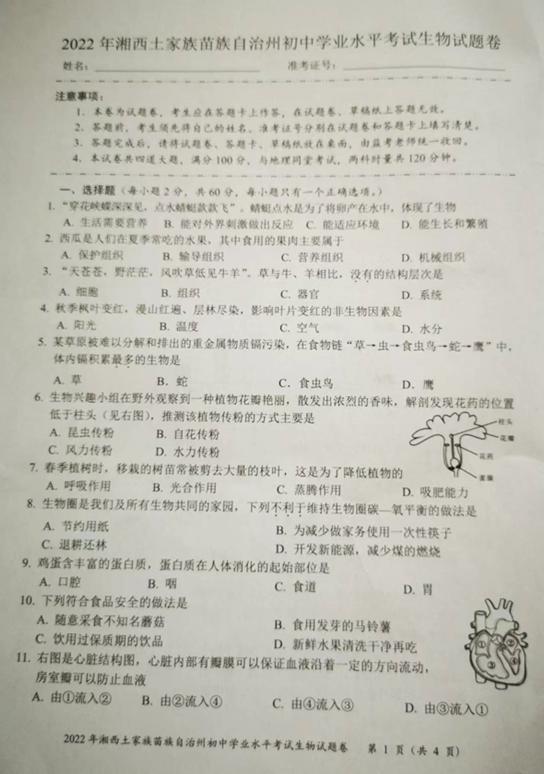 2022年湘西土家族苗族自治州初中学业水平考试生物试题卷
姓名：　　　　准考证号：
注意事项：
1．本卷为试题卷，考生应在答题卡上作答，在试题卷、草稿纸上答题无效。
2．答题前，考生须先将自己的姓名、准考证号分别在试题卷和答题卡上填写清楚。
3．答题完成后，请将试题卷、答题卡、草稿纸放在桌面，由监考老师统一收回。
4．本试卷共四道大题，满分100分，与地理同堂考试，两科时量共120分钟。
一、选择题（每小题2分，共60分，每小题只有一个正确选项。）
1．“穿花蛱蝶深深见，点水蜻蜓款款飞”。蜻蜓点水是为了将卵产在水中，体现了生物
A. 生活需要营养　B. 能对外界刺激做出反应　C. 能适应环境　D. 能生长和繁殖
2．西瓜是人们在夏季常吃的水果，其中食用的果肉主要属于
A. 保护组织　B. 输导组织　C. 营养组织　D. 机械组织
3．“天苍苍，野茫茫，风吹草低见牛羊”。草与牛、羊相比，没有的结构层次是
A. 细胞　B. 组织　C. 器官　D. 系统
4．秋季枫叶变红，漫山红遍、层林尽染，影响叶片变红的非生物因素是
A. 阳光　B. 温度　C. 空气　D. 水分
5．某草原被难以分解和排出的重金属物质镉污染，在食物链“草→虫→食虫鸟→蛇→鹰”中，
体内镉积累最多的生物是
A. 草　B. 蛇　C. 食虫鸟　D. 鹰
6．生物兴趣小组在野外观察到一种植物花瓣艳丽，散发出浓烈的香味，解剖发现花药的位置
低于柱头（见右图），推测该植物传粉的方式主要是
A. 昆虫传粉　B. 自花传粉
C. 风力传粉　D. 水力传粉
柱头
花瓣
花药
7．春季植树时，移栽的树苗常被剪去大量的枝叶，这是为了降低植物的
A. 呼吸作用　B. 光合作用　C. 蒸腾作用　D. 吸肥能力
8．生物圈是我们及所有生物共同的家园，下列不利于维持生物圈碳—氧平衡的做法是
A. 节约用纸　B. 为减少做家务使用一次性筷子
C. 退耕还林　D. 开发新能源，减少煤的燃烧
9．鸡蛋含丰富的蛋白质，蛋白质在人体消化的起始部位是
A. 口腔　B. 咽　C. 食道　D. 胃
10．下列符合食品安全的做法是
A. 随意采食不知名蘑菇　B. 食用发芽的马铃薯
C. 饮用过保质期的饮品　D. 新鲜水果清洗干净再吃
11．右图是心脏结构图，心脏内部有瓣膜可以保证血液沿着一定的方向流动，
房室瓣可以防止血液
A. 由①流入②　B. 由②流入④　C. 由④流入③　D. 由③流入①
2022年湘西土家族苗族自治州初中学业水平考试生物试题卷　第 1 页（共 4 页）